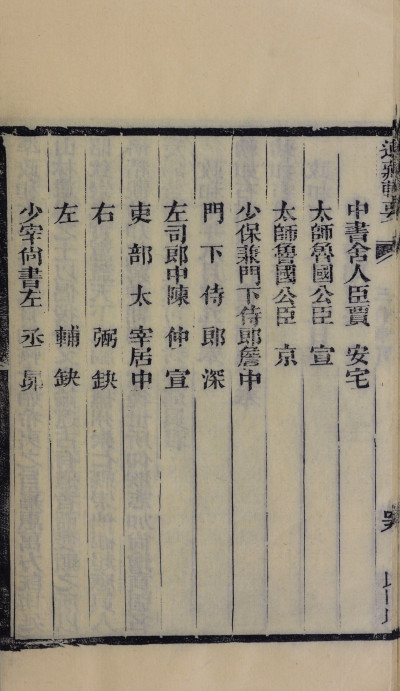 道藏輯要
中書舍人臣賈安宅
太師魯國公臣宣
太師魯國公臣京
少保兼門下侍郎詹中
門下侍郎深
左司郎中陳仲宣
吏部太宰居中
右弼缺
左輔缺
少宰尚書左丞昴